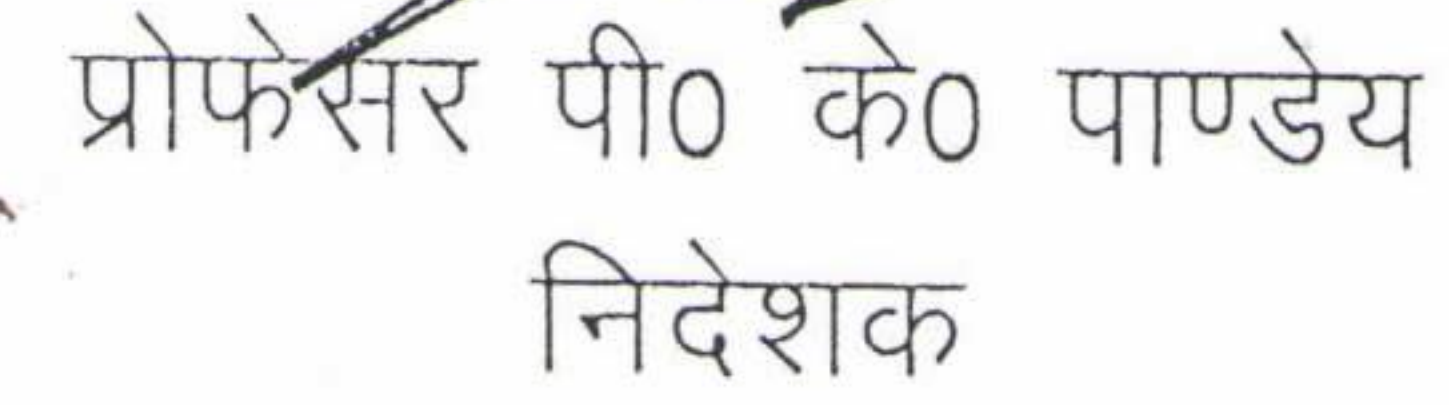 प्रोफेसर पी0 के0 पाण्डेय
निदेशक